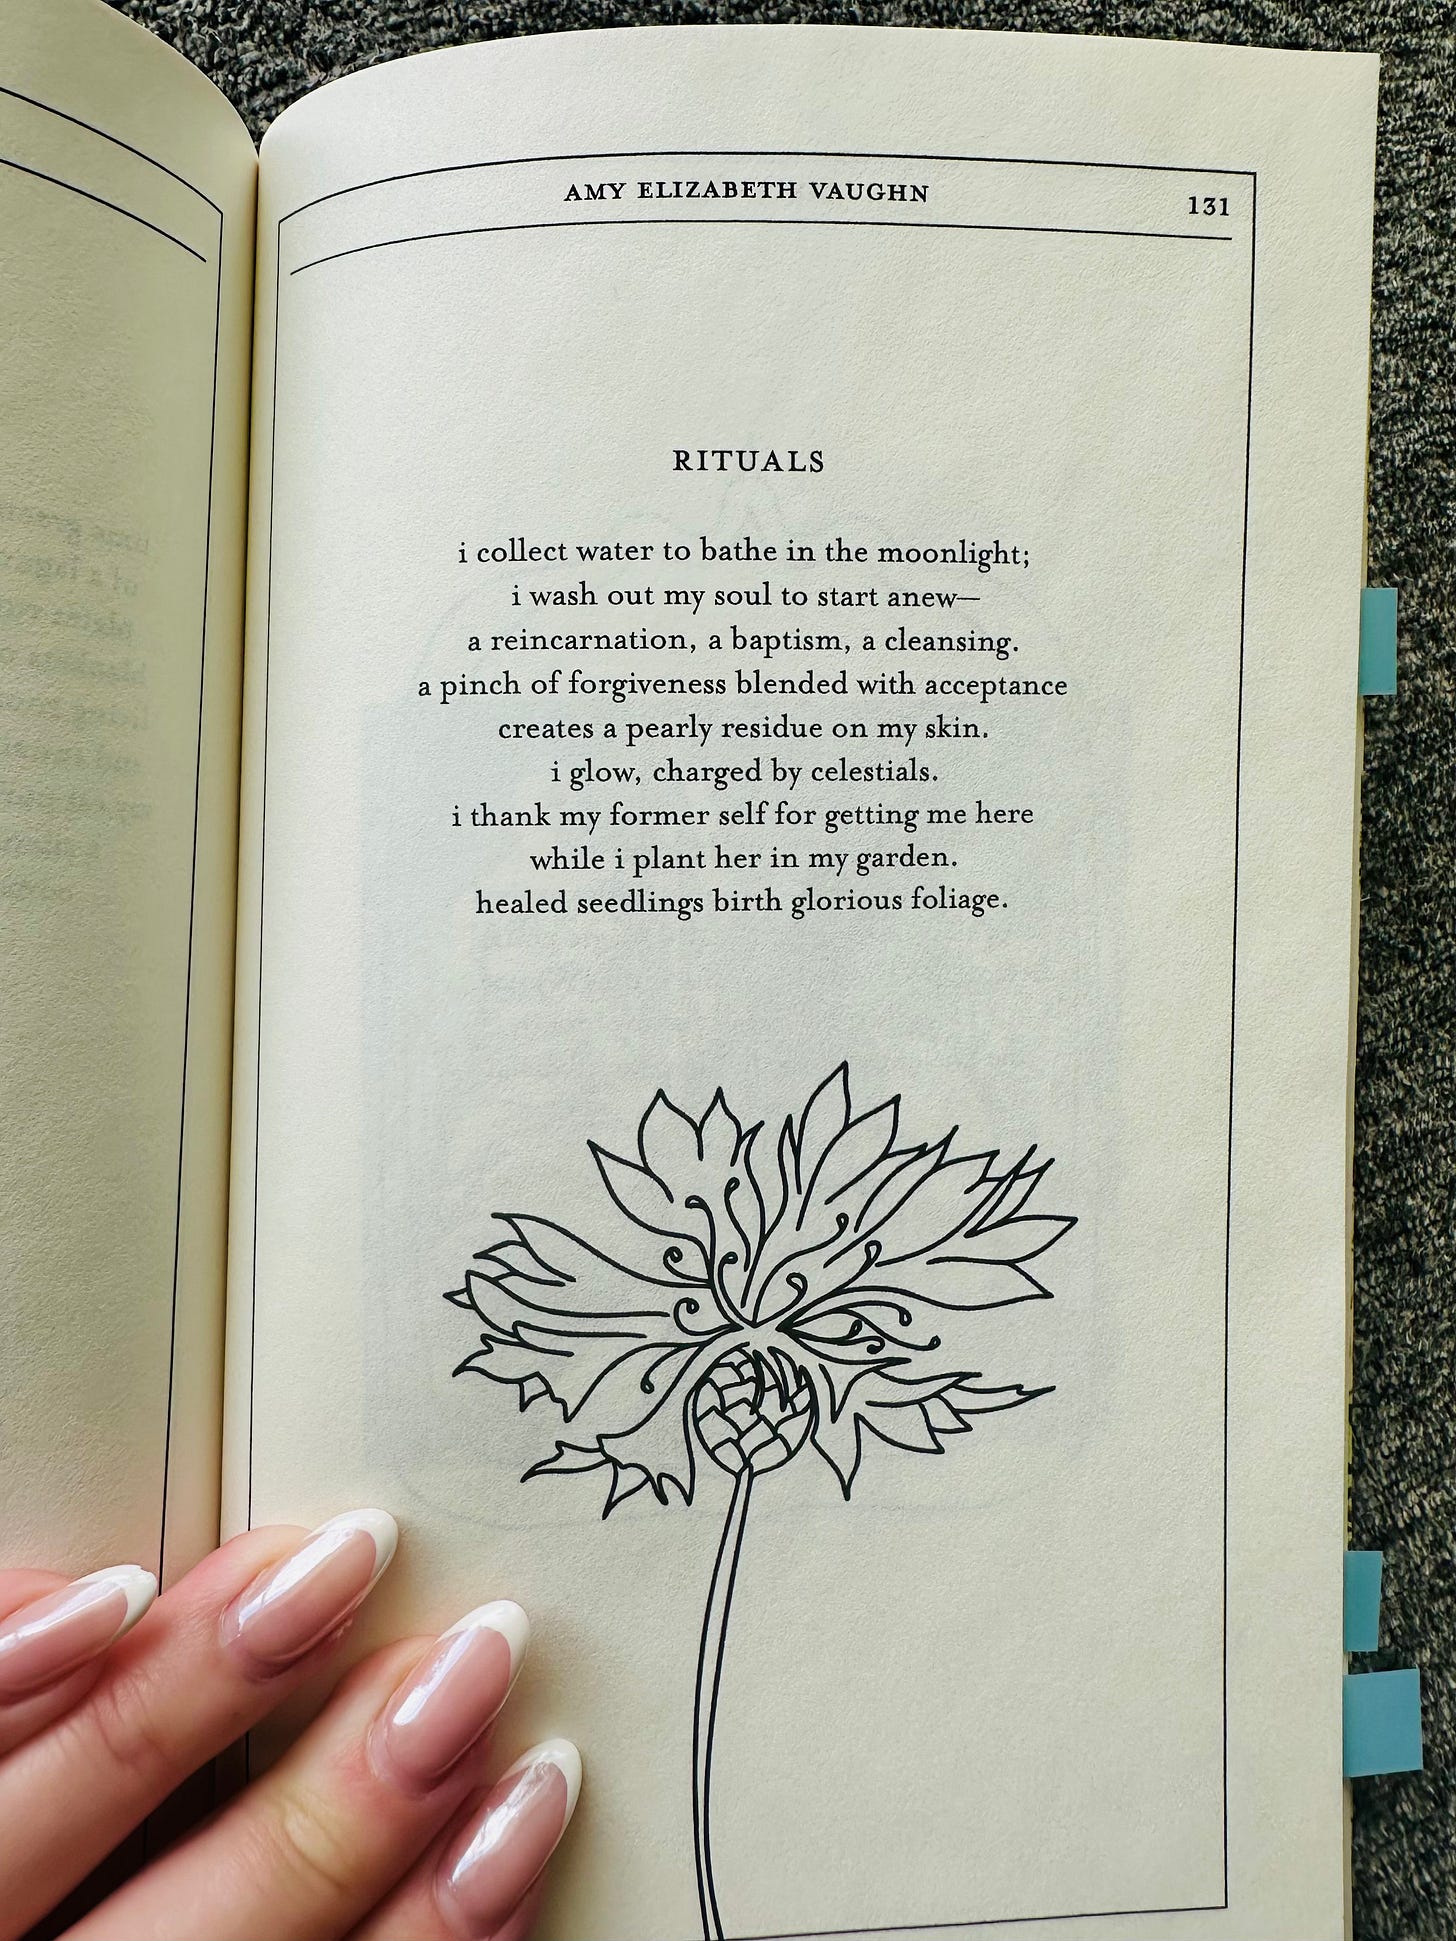 AMY ELIZABETH VAUGHN
131
RITUALS
i collect water to bathe in the moonlight;
i wash out my soul to start anew—
a reincarnation, a baptism, a cleansing.
a pinch of forgiveness blended with acceptance
creates a pearly residue on my skin.
i glow, charged by celestials.
i thank my former self for getting me here
while i plant her in my garden.
healed seedlings birth glorious foliage.